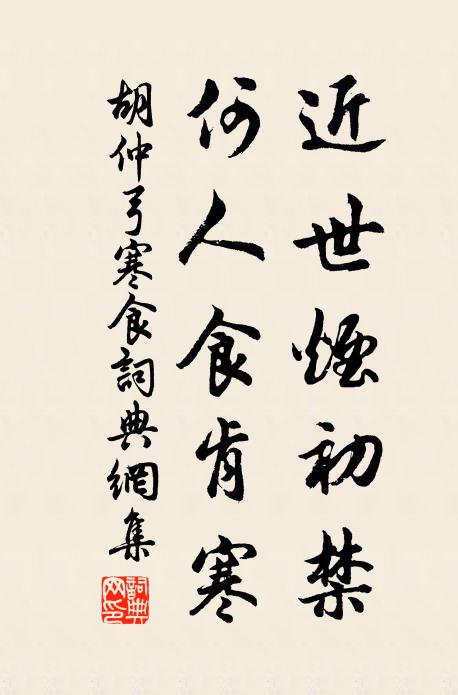 近世煙初禁
何人食肯寒
胡仲弓寒食詞典網集
詞典網印